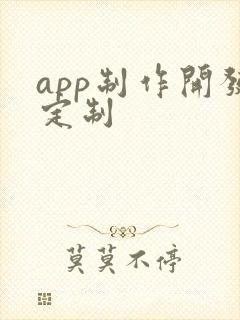 app制作開發
定制
莫莫不停